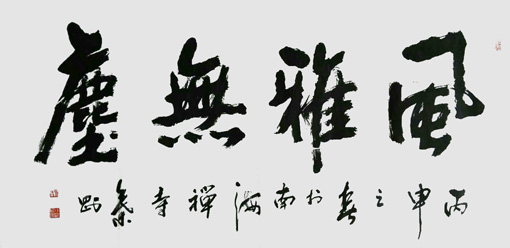 風雅無塵
丙申之春於南海禪寺